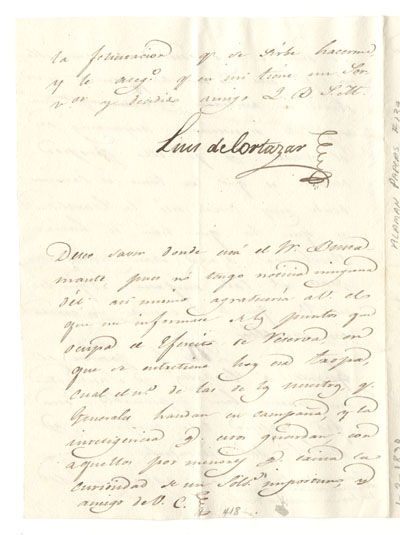 la felicitacion q. se sirbe hacerme
y le aseg.o q en mi tiene un Ser-
v.or y decidido amigo Q B S M.
Luis de Cortazar
Deseo saver donde está el Sr. Busta
mante pues no tengo noticia ninguna
de él: asi mismo agradeceria á V. el
que me informase de los puntos que
ocupa el Egército de Reserva en
que se entretiene hoy esa tropa,
cual el n.o de las de los nuestros q.
Generales handan en campaña y la
inteligencia q. esos guardan, con
aquellos por menores q. exige la
curiosidad de un importuno
amigo de V. C.
418
ALAMAN PAPERS # 139